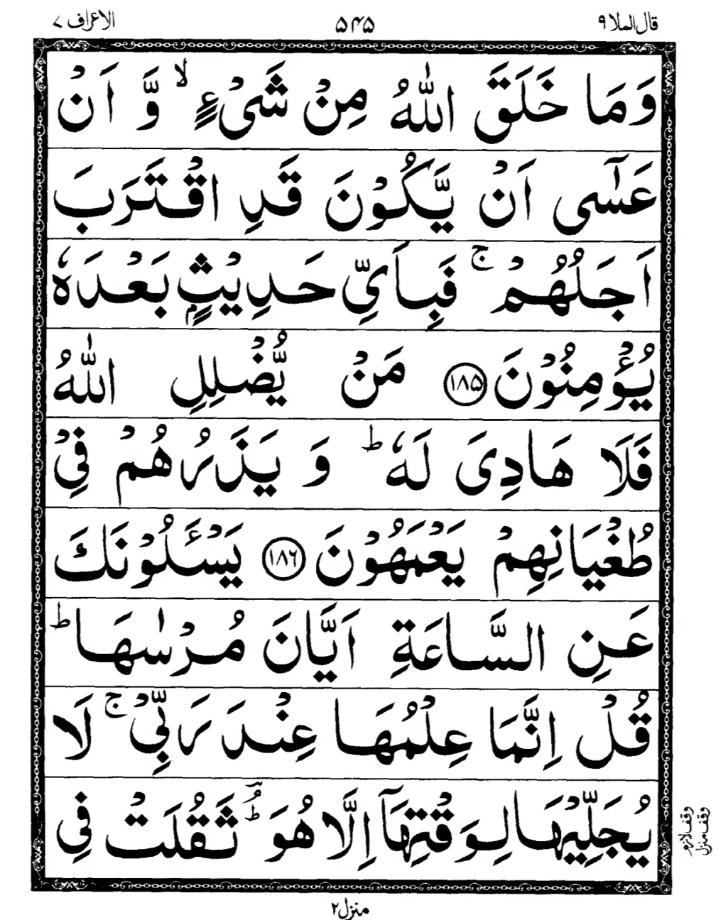 قال الملا ٩ ۵۴۵ الاعراف ٧
وَمَا خَلَقَ اللّٰهُ مِنْ شَیْءٍ ۙ وَّ اَنْ
عَسٰۤی اَنْ یَّكُوْنَ قَدِ اقْتَرَبَ
اَجَلُهُمْ ۚ فَبِاَیِّ حَدِیْثٍۭ بَعْدَهٗ
یُؤْمِنُوْنَ ﴿۱۸۵﴾ مَنْ یُّضْلِلِ اللّٰهُ
فَلَا هَادِیَ لَهٗ ؕ وَ یَذَرُهُمْ فِیْ
طُغْیَانِهِمْ یَعْمَهُوْنَ ﴿۱۸۶﴾ یَسْـَٔلُوْنَكَ
عَنِ السَّاعَةِ اَیَّانَ مُرْسٰىهَا ؕ
قُلْ اِنَّمَا عِلْمُهَا عِنْدَ رَبِّیْ ۚ لَا
یُجَلِّیْهَا لِوَقْتِهَاۤ اِلَّا هُوَ ؔۘؕ ثَقُلَتْ فِی
وقف لازم
وقف منزل
منزل ۲